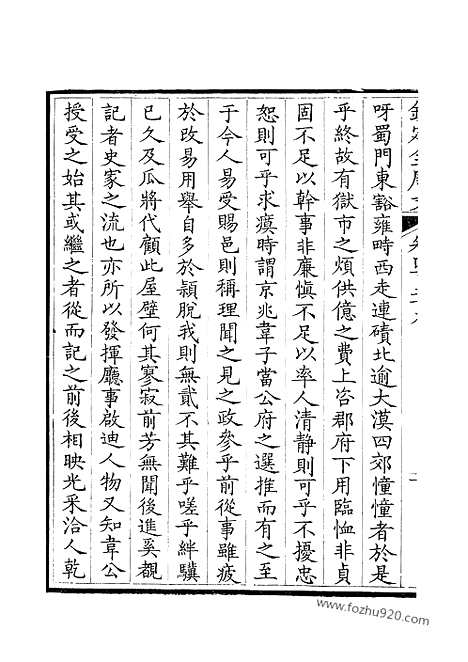 呀蜀門東豁雍時西走連磧北逾大漠四郊憧憧者於是
乎終故有獄市之煩供億之費上咨郡府下用臨恤非貞
固不足以幹事非廉慎不足以率人清静則可乎不擾忠
恕則可乎求瘼時謂京兆韋子當公府之選推而有之至
于今人易受賜邑則稱理聞之見之政參乎前從事雖疲
於改易用舉自多於穎脫我則無貳不其難乎嗟乎絆驥
已久及瓜將代顧此屋壁何其寥寂前芳無聞後進奚覩
記者史家之流也亦所以發揮廳事啟迪人物又知韋公
授受之始其或繼之者從而記之前後相映光采洽人乾
www.fozhu920.com